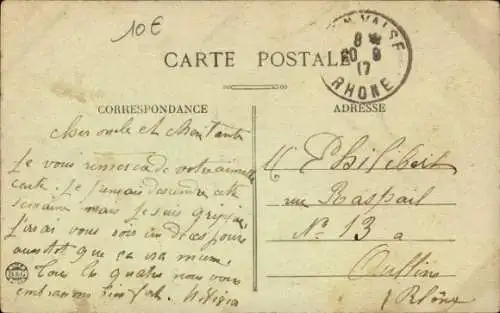 10€
CARTE POSTALE
VALSE
8 *
20 9
17
RHONE
CORRESPONDANCE
ADRESSE
Cher oncle et
Je vous remercie de votre aimable
carte. Je pensais descendre cette
semaine mais je suis grippée
j'irai vous voir un de ces jours
aussitôt que ça ira mieux.
Tous les quatre nous vous
embrassons bien fort.
Mr Philibert
rue Raspail
No 13 a
Oullins
Rhône